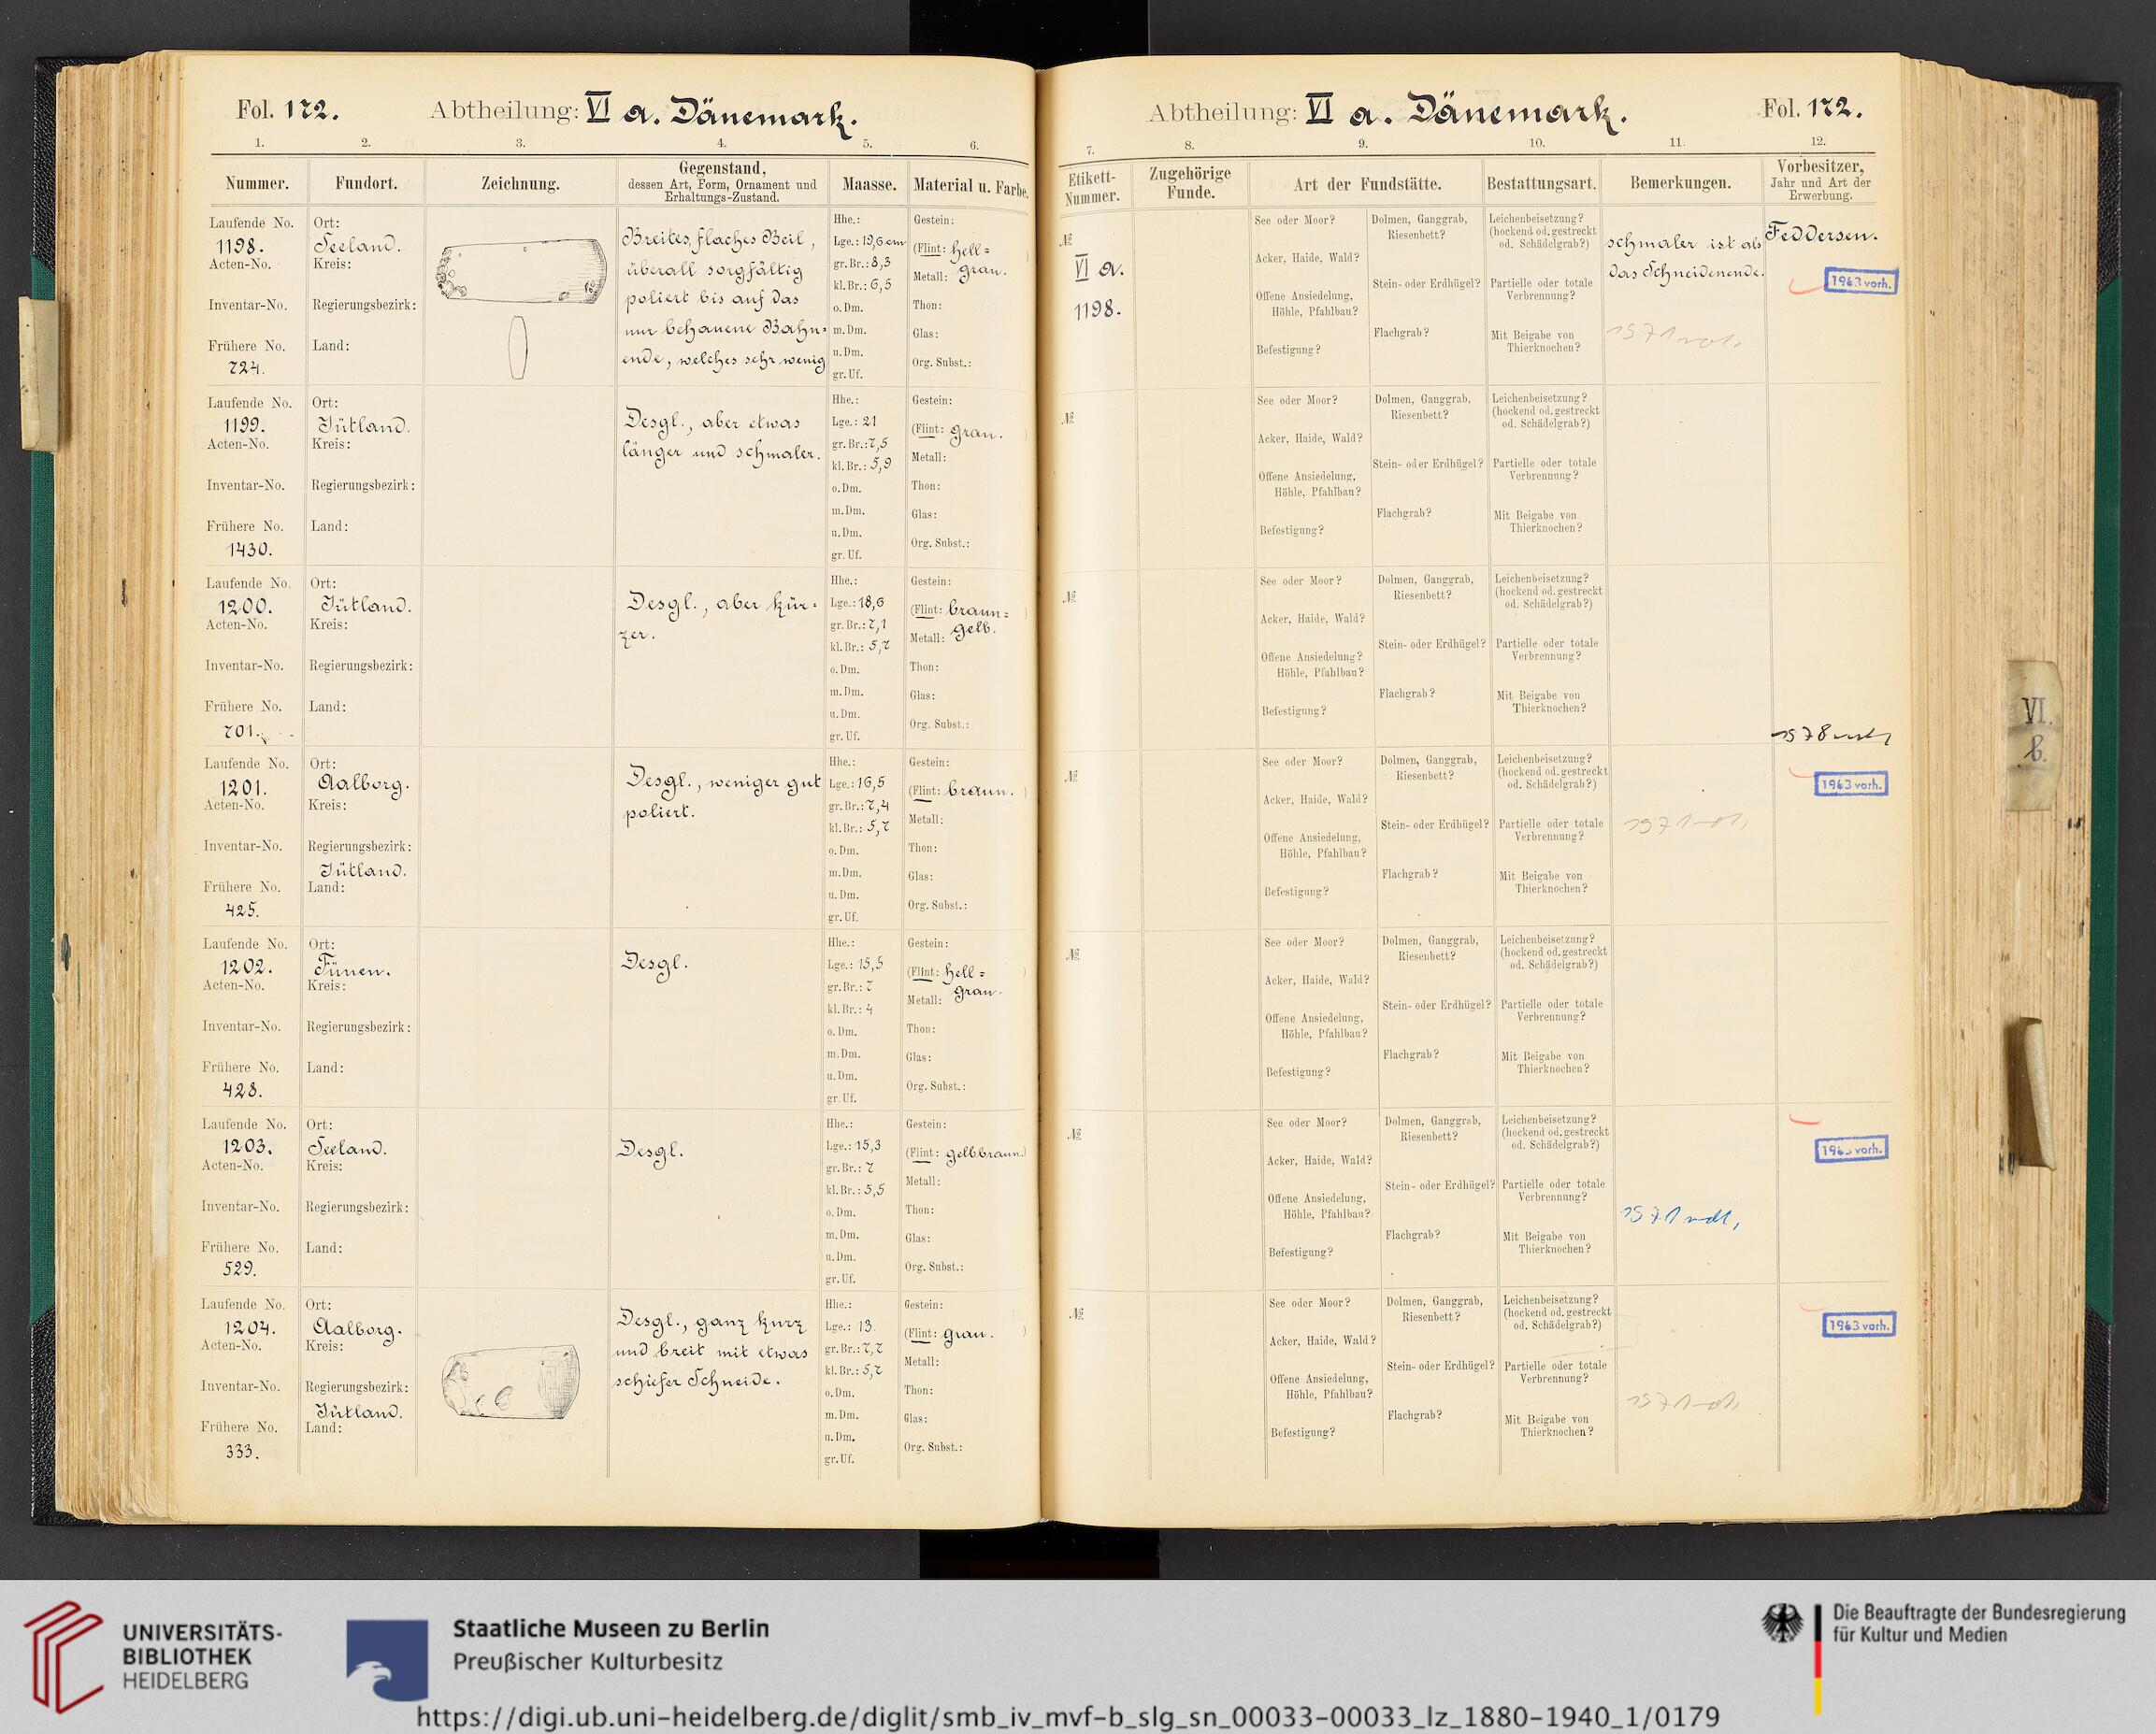 Fol. 172. Abtheilung: VI a. Dänemark.
1. 2. 3. 4. 5. 6.
Nummer. Fundort. Zeichnung. Gegenstand, dessen Art, Form, Ornament und Erhaltungs-Zustand. Maasse. Material u. Farbe.
Laufende No. 1198.
Acten-No.
Inventar-No.
Frühere No. 724.
Ort: Seeland.
Kreis:
Regierungsbezirk:
Land:
Breites, flaches Beil,
überall sorgfältig
poliert bis auf das
nur behauene Bahn=
ende, welches sehr wenig
Hhe.:
Lge.: 19,6 cm
gr. Br.: 8,3
kl. Br.: 6,5
o. Dm.
m. Dm.
u. Dm.
gr. Uf.
Gestein:
(Flint: hell=
grau. )
Metall:
Thon:
Glas:
Org. Subst.:
Laufende No. 1199.
Acten-No.
Inventar-No.
Frühere No. 1430.
Ort: Jütland.
Kreis:
Regierungsbezirk:
Land:
Desgl., aber etwas
länger und schmaler.
Hhe.:
Lge.: 21
gr. Br.: 7,5
kl. Br.: 5,9
o. Dm.
m. Dm.
u. Dm.
gr. Uf.
Gestein:
(Flint: grau. )
Metall:
Thon:
Glas:
Org. Subst.:
Laufende No. 1200.
Acten-No.
Inventar-No.
Frühere No. 701.
Ort: Jütland.
Kreis:
Regierungsbezirk:
Land:
Desgl., aber kür=
zer.
Hhe.:
Lge.: 18,6
gr. Br.: 7,1
kl. Br.: 5,7
o. Dm.
m. Dm.
u. Dm.
gr. Uf.
Gestein:
(Flint: braun=
gelb. )
Metall:
Thon:
Glas:
Org. Subst.:
Laufende No. 1201.
Acten-No.
Inventar-No.
Frühere No. 425.
Ort: Aalborg.
Kreis:
Regierungsbezirk: Jütland.
Land:
Desgl., weniger gut
poliert.
Hhe.:
Lge.: 16,5
gr. Br.: 7,4
kl. Br.: 5,7
o. Dm.
m. Dm.
u. Dm.
gr. Uf.
Gestein:
(Flint: braun. )
Metall:
Thon:
Glas:
Org. Subst.:
Laufende No. 1202.
Acten-No.
Inventar-No.
Frühere No. 428.
Ort: Fünen.
Kreis:
Regierungsbezirk:
Land:
Desgl.
Hhe.:
Lge.: 15,5
gr. Br.: 7
kl. Br.: 4
o. Dm.
m. Dm.
u. Dm.
gr. Uf.
Gestein:
(Flint: hell=
grau. )
Metall:
Thon:
Glas:
Org. Subst.:
Laufende No. 1203.
Acten-No.
Inventar-No.
Frühere No. 529.
Ort: Seeland.
Kreis:
Regierungsbezirk:
Land:
Desgl.
Hhe.:
Lge.: 15,3
gr. Br.: 7
kl. Br.: 5,5
o. Dm.
m. Dm.
u. Dm.
gr. Uf.
Gestein:
(Flint: gelbbraun.)
Metall:
Thon:
Glas:
Org. Subst.:
Laufende No. 1204.
Acten-No.
Inventar-No.
Frühere No. 333.
Ort: Aalborg.
Kreis:
Regierungsbezirk: Jütland.
Land:
Desgl., ganz kurz
und breit mit etwas
schiefer Schneide.
Hhe.:
Lge.: 13
gr. Br.: 7,7
kl. Br.: 5,7
o. Dm.
m. Dm.
u. Dm.
gr. Uf.
Gestein:
(Flint: grau. )
Metall:
Thon:
Glas:
Org. Subst.:
Abtheilung: VI a. Dänemark. Fol. 172.
7. 8. 9. 10. 11. 12.
Etikett-Nummer. Zugehörige Funde. Art der Fundstätte. Bestattungsart. Bemerkungen. Vorbesitzer, Jahr und Art der Erwerbung.
№
VI a.
1198.
See oder Moor?
Acker, Haide, Wald?
Offene Ansiedelung,
Höhle, Pfahlbau?
Befestigung?
Dolmen, Ganggrab,
Riesenbett?
Stein- oder Erdhügel?
Flachgrab?
Leichenbeisetzung?
(hockend od. gestreckt
od. Schädelgrab?)
Partielle oder totale
Verbrennung?
Mit Beigabe von
Thierknochen?
schmaler ist als
das Schneidenende.
Feddersen.
1963 vorh.
№
See oder Moor?
Acker, Haide, Wald?
Offene Ansiedelung,
Höhle, Pfahlbau?
Befestigung?
Dolmen, Ganggrab,
Riesenbett?
Stein- oder Erdhügel?
Flachgrab?
Leichenbeisetzung?
(hockend od. gestreckt
od. Schädelgrab?)
Partielle oder totale
Verbrennung?
Mit Beigabe von
Thierknochen?
№
See oder Moor?
Acker, Haide, Wald?
Offene Ansiedelung?
Höhle, Pfahlbau?
Befestigung?
Dolmen, Ganggrab,
Riesenbett?
Stein- oder Erdhügel?
Flachgrab?
Leichenbeisetzung?
(hockend od. gestreckt
od. Schädelgrab?)
Partielle oder totale
Verbrennung?
Mit Beigabe von
Thierknochen?
1978
№
See oder Moor?
Acker, Haide, Wald?
Offene Ansiedelung,
Höhle, Pfahlbau?
Befestigung?
Dolmen, Ganggrab,
Riesenbett?
Stein- oder Erdhügel?
Flachgrab?
Leichenbeisetzung?
(hockend od. gestreckt
od. Schädelgrab?)
Partielle oder totale
Verbrennung?
Mit Beigabe von
Thierknochen?
1971
1963 vorh.
№
See oder Moor?
Acker, Haide, Wald?
Offene Ansiedelung,
Höhle, Pfahlbau?
Befestigung?
Dolmen, Ganggrab,
Riesenbett?
Stein- oder Erdhügel?
Flachgrab?
Leichenbeisetzung?
(hockend od. gestreckt
od. Schädelgrab?)
Partielle oder totale
Verbrennung?
Mit Beigabe von
Thierknochen?
№
See oder Moor?
Acker, Haide, Wald?
Offene Ansiedelung,
Höhle, Pfahlbau?
Befestigung?
Dolmen, Ganggrab,
Riesenbett?
Stein- oder Erdhügel?
Flachgrab?
Leichenbeisetzung?
(hockend od. gestreckt
od. Schädelgrab?)
Partielle oder totale
Verbrennung?
Mit Beigabe von
Thierknochen?
1971
1963 vorh.
№
See oder Moor?
Acker, Haide, Wald?
Offene Ansiedelung,
Höhle, Pfahlbau?
Befestigung?
Dolmen, Ganggrab,
Riesenbett?
Stein- oder Erdhügel?
Flachgrab?
Leichenbeisetzung?
(hockend od. gestreckt
od. Schädelgrab?)
Partielle oder totale
Verbrennung?
Mit Beigabe von
Thierknochen?
1971
1963 vorh.
VI.
b.
UNIVERSITÄTS-
BIBLIOTHEK
HEIDELBERG
Staatliche Museen zu Berlin
Preußischer Kulturbesitz
Die Beauftragte der Bundesregierung
für Kultur und Medien
https://digi.ub.uni-heidelberg.de/diglit/smb_iv_mvf-b_slg_sn_00033-00033_lz_1880-1940_1/0179